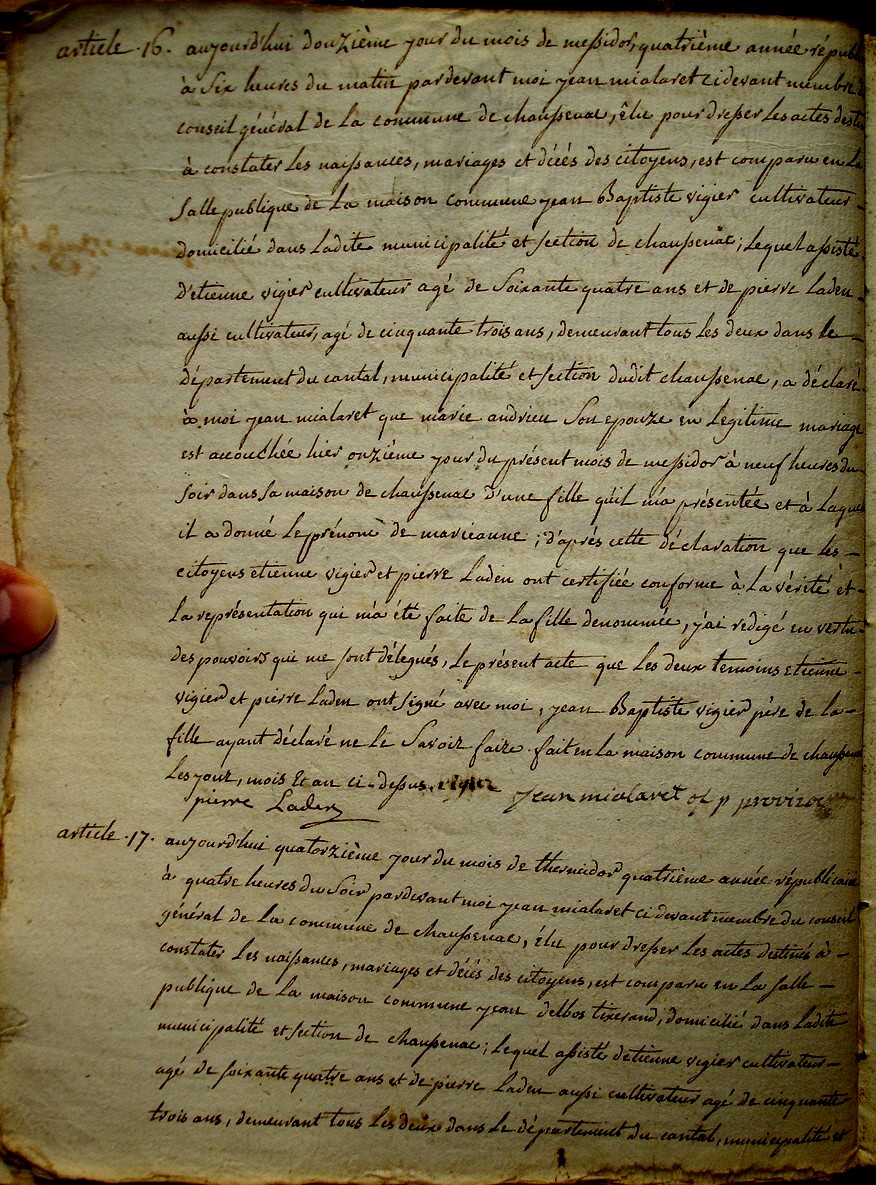 article .16. aujourd'hui douzième jour du mois de messidor, quatrième année répub
à Six heures du matin pardevant moi jean mialaret cidevant membre d
conseil général de La commune de chaussenac, élu pour dresser Les actes desti
à constater Les naissances, mariages et décés des citoyens, est comparu en La
Salle publique de La maison commune jean Baptiste vigier cultivateur
domicilié dans Ladite municipalité et section de chaussenac; Lequel assisté
d'etienne vigier cultivateur agé de Soixante quatre ans et de pierre Laden
aussi cultivateur, agé de cinquante trois ans, demeurant tous Les deux dans Le
département du cantal, municipalité et section dudit chaussenac, a déclaré
à moi jean mialaret que marie andrieu Son epouze en Legitime mariage
est accouchée hier onzième jour du présent mois de messidor à neuf heures du
Soir dans Sa maison de chaussenac D'une fille quil m'a présentée et à Laque
il a donné Le prénom de marieanne; d'aprés cette déclaration que Les
citoyens etienne vigier et pierre Laden ont certifiée conforme à La vérité et
La représentation qui m'a été faite de La fille denommée, j'ai redigé en vertu
des pouvoirs qui me sont délegués, Le présent acte que Les deux temoins etienne
vigier et pierre Laden ont Signé avec moi, jean Baptiste vigier père de La
fille ayant déclaré ne Le Savoir faire. fait en La maison commune de chaussena
Les jour, mois Et an ci-dessus. vigier jean mialaret of p
pierre Laden
article .17. aujourd'hui quatorzième jour du mois de thermidor quatrième année républicaine
à quatre heures du Soir pardevant moi jean mialaret ci devant membre du conseil
général de La commune de chaussenac, élu pour dresser Les actes destinés à
constater Les naissances, mariages et décés des citoyens, est comparu en La Salle
publique de La maison commune jean delbos tixerand, domicilié dans Ladite
municipalité et section de chaussenac; Lequel assisté detienne vigier cultivateur
agé de soixante quatre ans et de pierre Laden aussi cultivateur agé de cinquante
trois ans, demeurant tous Les deux dans Le département du cantal, municipalité et